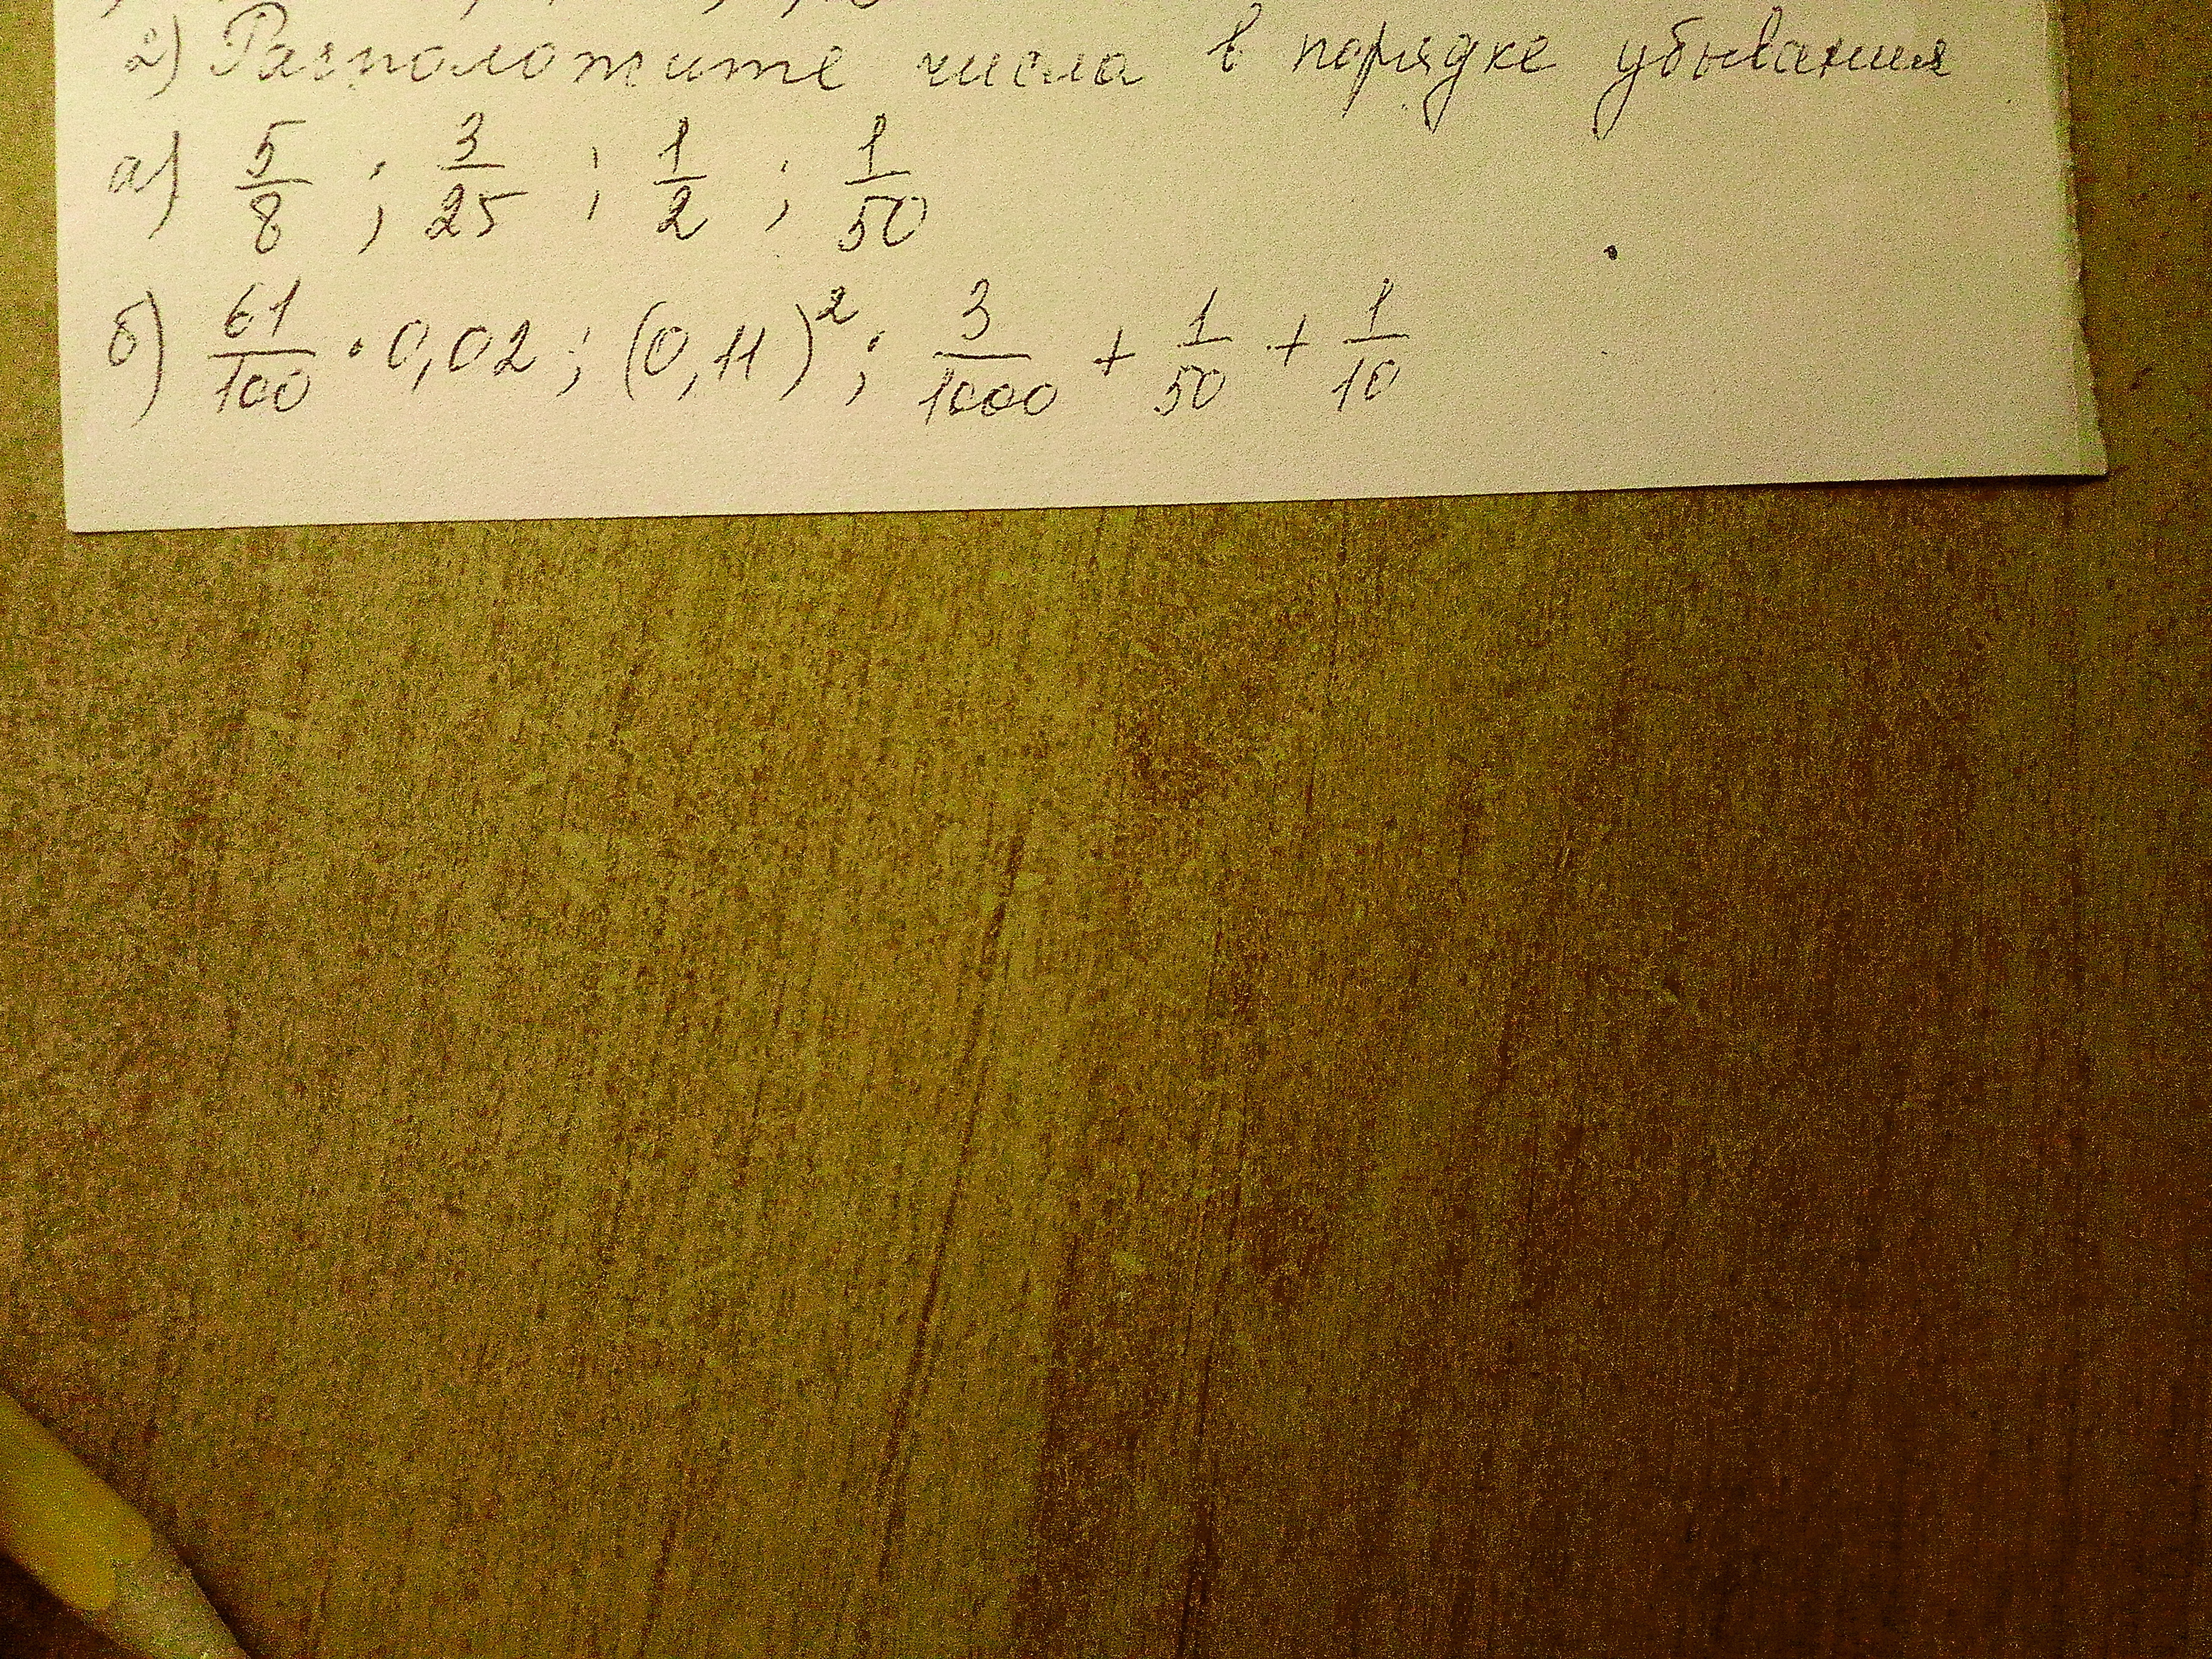 2) Расположите числа в порядке убывания
а) 5/8 ; 3/25 ; 1/2 ; 1/50
б) 61/100 · 0,02 ; (0,11)² ; 3/1000 + 1/50 + 1/10